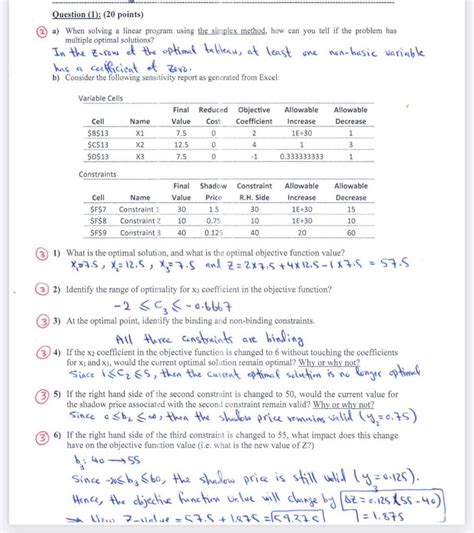 Question (1): (20 points)
② a) When solving a linear program using the simplex method, how can you tell if the problem has
multiple optimal solutions?
In the Z-row of the optimal tableau, at least one non-basic variable
has a coefficient of zero.
b) Consider the following sensitivity report as generated from Excel:
Variable Cells
Final Reduced Objective Allowable Allowable
Cell Name Value Cost Coefficient Increase Decrease
$B$13 X1 7.5 0 2 1E+30 1
$C$13 X2 12.5 0 4 1 3
$D$13 X3 7.5 0 -1 0.333333333 1
Constraints
Final Shadow Constraint Allowable Allowable
Cell Name Value Price R.H. Side Increase Decrease
$F$7 Constraint 1 30 1.5 30 1E+30 15
$F$8 Constraint 2 10 0.75 10 1E+30 10
$F$9 Constraint 3 40 0.125 40 20 60
③ 1) What is the optimal solution, and what is the optimal objective function value?
X₁=7.5, X₂=12.5, X₃=7.5 and Z=2×7.5+4×12.5-1×7.5 = 57.5
③ 2) Identify the range of optimality for x₃ coefficient in the objective function?
-2 ≤ C₃ ≤ -0.6667
③ 3) At the optimal point, identify the binding and non-binding constraints.
All three constraints are binding
③ 4) If the x₂ coefficient in the objective function is changed to 6 without touching the coefficients
for x₁ and x₃, would the current optimal solution remain optimal? Why or why not?
Since 1≤C₂≤5, then the current optimal solution is no longer optimal
③ 5) If the right hand side of the second constraint is changed to 50, would the current value for
the shadow price associated with the second constraint remain valid? Why or why not?
Since 0≤b₂≤∞, then the shadow price remains valid (y₂=0.75)
③ 6) If the right hand side of the third constraint is changed to 55, what impact does this change
have on the objective function value (i.e. what is the new value of Z)?
b₃: 40 → 55
Since -20≤b₃≤60, the shadow price is still valid (y₃=0.125).
Hence, the objective function value will change by ΔZ=0.125×(55-40)
⇒ New Z-value = 57.5 + 1.875 = 59.375 = 1.875